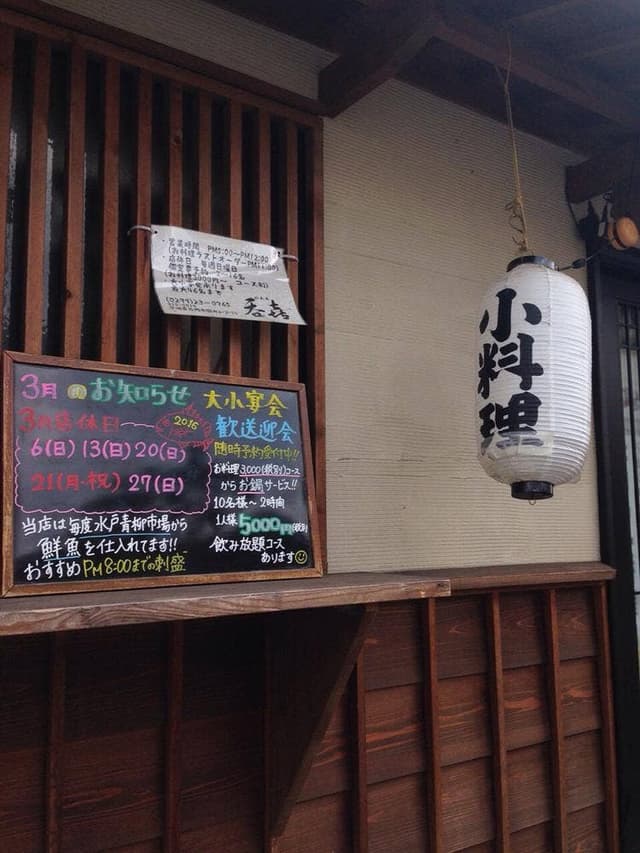 営業時間 PM5:00〜PM12:00
(お料理ラストオーダーPM11:00)
店休日 毎週日曜日
(0299)23-0765
呑喜
3月 お知らせ
3月店休日
2016
6(日) 13(日) 20(日)
21(月・祝) 27(日)
当店は毎度水戸青柳市場から
鮮魚を仕入れてます!!
おすすめPM8:00までの刺盛
大小宴会
歓送迎会
随時予約受付中!!
お料理3,000(税別)コース
からお鍋サービス!!
10名様〜2時間
1人様5000円(税別)
飲み放題コース
あります
小料理